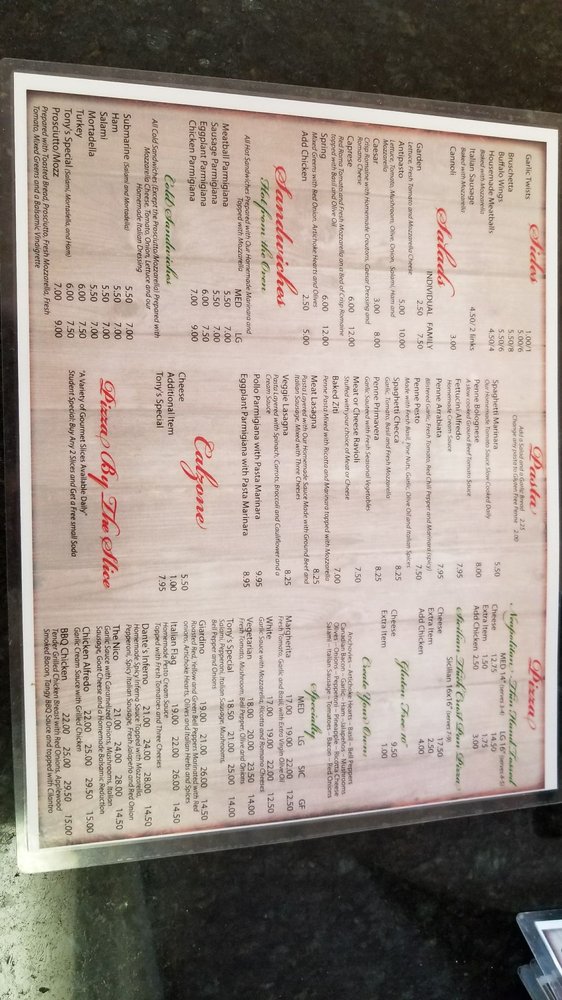 Sides
Garlic Twists 1.00/1
Bruschetta 5.00/6
Buffalo Wings 5.50/8
Housemade Meatballs 5.50/6
Baked with Mozzarella 4.50/4
Italian Sausage
Baked with Mozzarella 4.50/ 2 links
Cannoli 3.00
Salads
INDIVIDUAL FAMILY
Garden 2.50 7.50
Lettuce, Fresh Tomato and Mozzarella Cheese
Antipasto 5.00 10.00
Lettuce, Tomato, Mushroom, Olive, Onion, Salami, Ham and
Mozzarella
Caesar 3.00 8.00
Crisp Romaine with Homemade Croutons, Caesar Dressing and
Romano Cheese
Caprese 6.00 12.00
Red Roma Tomato and Fresh Mozzarella on a Bed of Crisp Romaine
topped with Basil and Olive Oil
Spring 6.00 12.00
Mixed Greens with Red Onion, Artichoke Hearts and Olives
Add Chicken 2.50 5.00
Sandwiches
Hot from the Oven
All Hot Sandwiches Prepared with Our Homemade Marinara and
Topped with Mozzarella
MED LG
Meatball Parmigiana 5.50 7.00
Sausage Parmigiana 5.50 7.00
Eggplant Parmigiana 6.00 7.50
Chicken Parmigiana 7.00 9.00
Cold Sandwiches
All Cold Sandwiches (Except the Prosciutto/Mozzarella) Prepared with
Mozzarella Cheese, Tomato, Onion, Lettuce and our
Homemade Italian Dressing
Submarine (Salami and Mortadella) 5.50 7.00
Ham 5.50 7.00
Salami 5.50 7.00
Mortadella 5.50 7.00
Turkey 6.00 7.50
Tony's Special (Salami, Mortadella, and Ham) 6.00 7.50
Prosciutto/Mozz 7.00 9.00
Prepared with Toasted Bread, Prosciutto, Fresh Mozzarella, Fresh
Tomato, Mixed Greens and a Balsamic Vinaigrette
Pasta
Add a Salad and a Garlic Bread 2.25
Change any pasta to Gluten Free Penne 2.00
Spaghetti Marinara 5.50
Our Homemade Tomato Sauce Slow Cooked Daily
Penne Bolognese 8.00
A slow cooked Ground Beef Tomato Sauce
Fettucini Alfredo 7.95
Homemade Cream Sauce
Penne Arrabiata 7.95
Blistered Garlic, Fresh Tomato, Red Chili Pepper and Marinara (spicy)
Penne Pesto 7.50
Made with Fresh Basil, Pine Nuts, Garlic, Olive Oil and Italian Spices
Spaghetti Checca 8.25
Garlic, Tomato, Basil and Fresh Mozzarella
Penne Primavera 8.25
Garlic Sauteed with Fresh Seasonal Vegetables
Meat or Cheese Ravioli 7.50
Stuffed with your Choice of Meat or Cheese
Baked Ziti 7.00
Penne Pasta Mixed with Ricotta and Marinara topped with Mozzarella
Meat Lasagna 8.25
Pasta Layered with Our Homemade Sauce Made with Ground Beef and
Italian Sausage, Mixed with Three Cheeses
Veggie Lasagna 8.25
Pasta Layered with Spinach, Carrots, Broccoli and Cauliflower and a
Cream Sauce
Pollo Parmigiana with Pasta Marinara 9.95
Eggplant Parmigiana with Pasta Marinara 8.95
Calzone
Cheese 5.50
Additional Item 1.00
Tony's Special 7.95
Pizza By The Slice
"A Variety of Gourmet Slices Available Daily"
Student Special: Buy Any 2 Slices and Get a Free small Soda
Pizza
Neapolitan - Thin Hand Tossed
MED 14" (Serves 3-4) LG 16" (Serves 4-5)
Cheese 11.75 14.50
Extra Item 1.50 1.75
Add Chicken 2.50 3.00
Sicilian Thick Crust Pan Pizza
Sicilian 16x16 (Serves 7-8)
Cheese 17.50
Extra Item 2.50
Add Chicken 4.00
Gluten Free 10"
Cheese 9.50
Extra Item 1.00
Create Your Own
Anchovies – Artichoke Hearts – Basil – Bell Peppers
Canadian Bacon – Garlic – Ham – Jalapeños – Mushrooms
Olives – Onions – Pepperoni – Pineapple – Ricotta Cheese
Salami – Italian Sausage – Tomatoes – Bacon – Red Onions
Specialty
MED LG SIC GF
Margherita 17.00 19.00 22.00 12.50
Fresh Tomato, Garlic and Basil with Extra Virgin Olive Oil
White 17.00 19.00 22.00 12.50
Garlic Sauce with Mozzarella, Ricotta and Romano Cheeses
Vegetarian 18.00 20.00 23.50 14.00
Fresh Tomato, Mushroom, Bell Pepper, Olives and Onions
Tony's Special 18.50 21.00 25.00 14.00
Salami, Pepperoni, Italian Sausage, Mushrooms,
Bell Peppers and Onions
Giardino 19.00 21.00 26.00 14.50
Roasted Red, Yellow and Green Bell Peppers Marinated with Red
Onions, Artichoke Heart, Olives and Italian Herbs and Spices
Italian Flag 19.00 22.00 26.00 14.50
Homemade Pesto Cream Sauce
Topped with Fresh Tomatoes and Three Cheeses
Dante's Inferno 21.00 24.00 28.00 14.50
Homemade Spicy Inferno Sauce Topped with Mozzarella,
Pepperoni, Spicy Italian Sausage, Fresh Jalapeño and Red Onion
The Nico 21.00 24.00 28.00 14.50
Garlic Sauce with Caramelized Onions, Mushrooms, Italian
Sausage, Goat Cheese and a Homemade Balsamic Reduction
Chicken Alfredo 22.00 25.00 29.50 15.00
Garlic Cream Sauce with Grilled Chicken
BBQ Chicken 22.00 25.00 29.50 15.00
Tender Grilled Chicken Breast with Red Onions, Applewood
Smoked Bacon, Tangy BBQ Sauce and topped with Cilantro